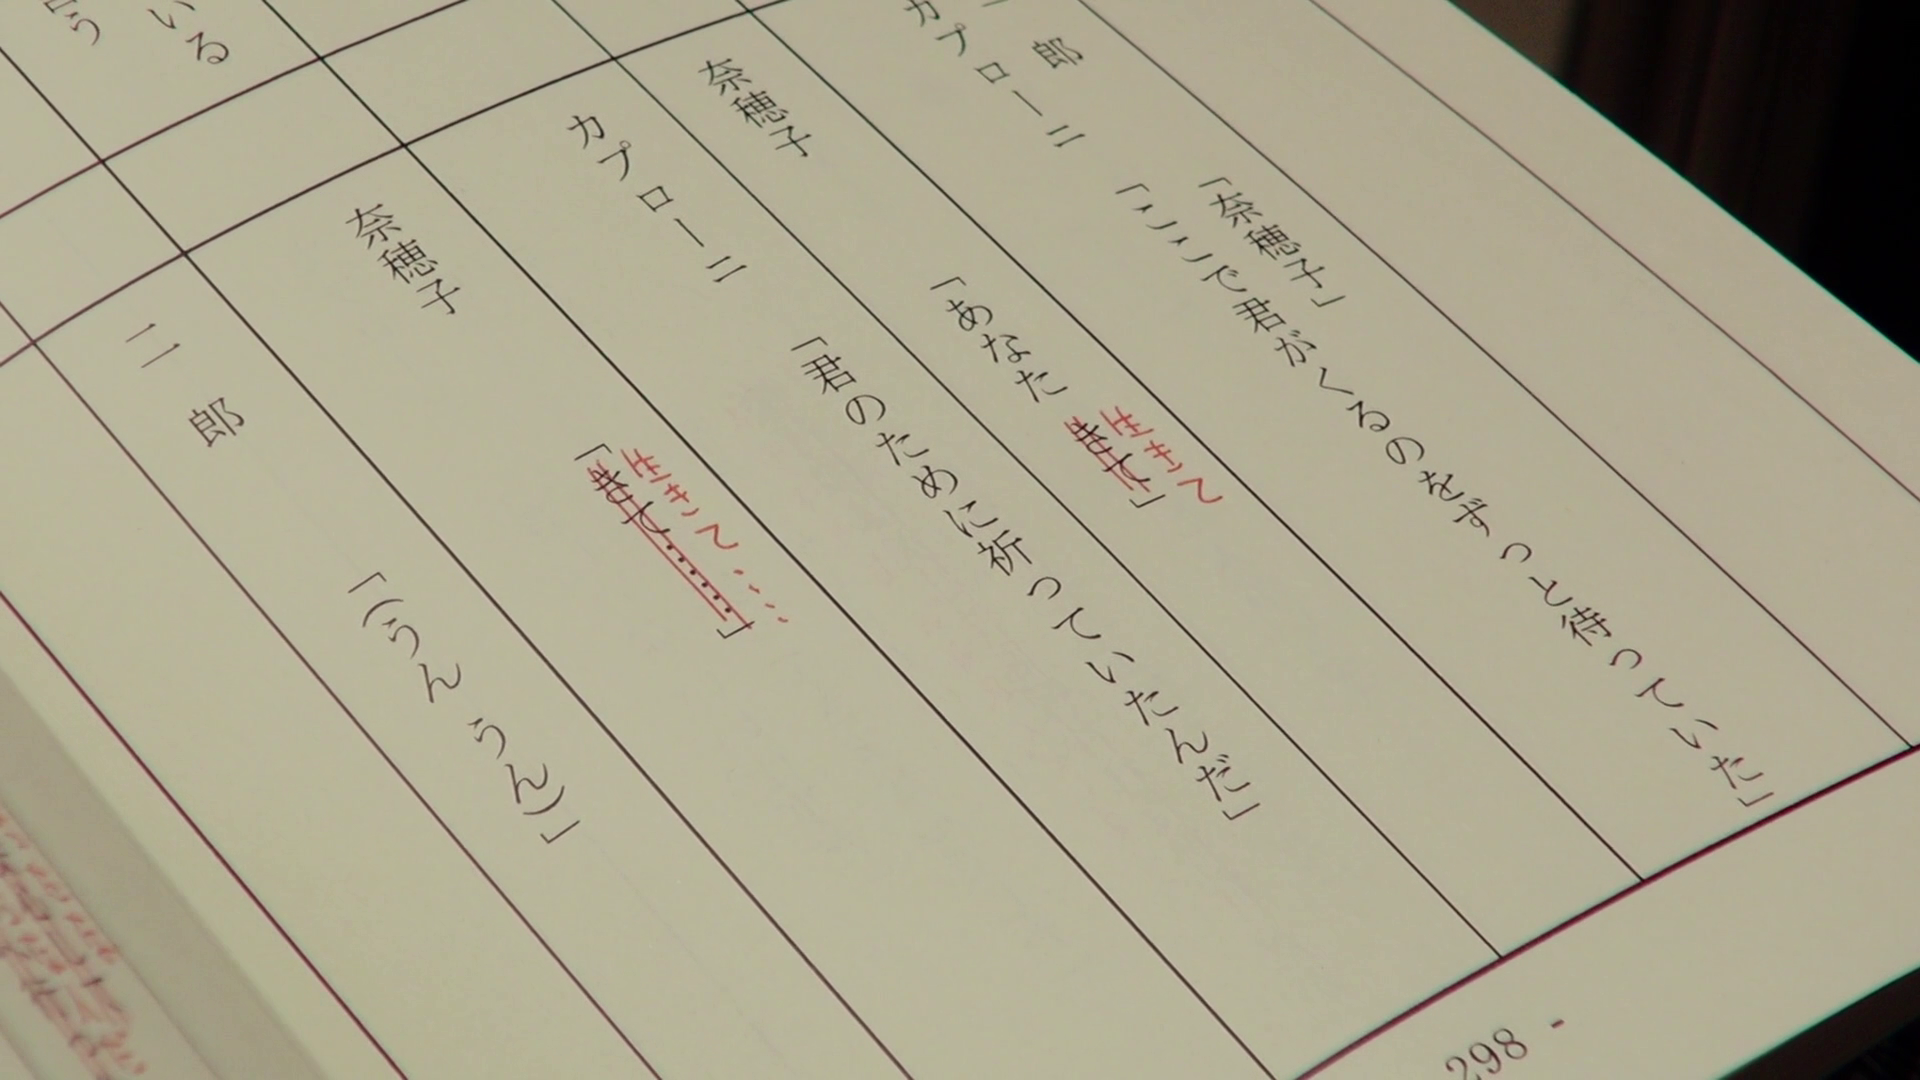 二郎「奈穂子」
カプローニ「ここで君がくるのをずっと待っていた」
奈穂子「あなた きて」
生きて
カプローニ「君のために祈っていたんだ」
奈穂子「きて……」
生きて……
二郎「(うん うん)」
いる
う
298 -